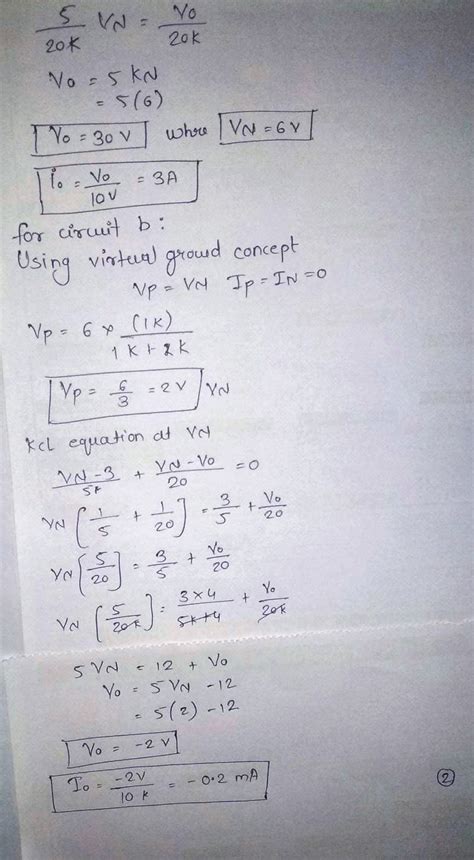 5/20K VN = Vo/20K
Vo = 5 KN
= 5(6)
Vo = 30 V whre VN = 6 V
Io = Vo/10V = 3A
for circuit b :
Using virtual ground concept
VP = VN IP = IN = 0
VP = 6 × (1K)/1K+2K
VP = 6/3 = 2 V VN
KCL equation at VN
VN-3/5K + VN-Vo/20 = 0
VN [1/5 + 1/20] = 3/5 + Vo/20
VN [5/20] = 3/5 + Vo/20
VN [5/20K] = 3×4/5K+4 + Vo/20K
5 VN = 12 + Vo
Vo = 5 VN - 12
= 5(2) - 12
Vo = -2 V
Io = -2V/10 K = -0.2 mA
2